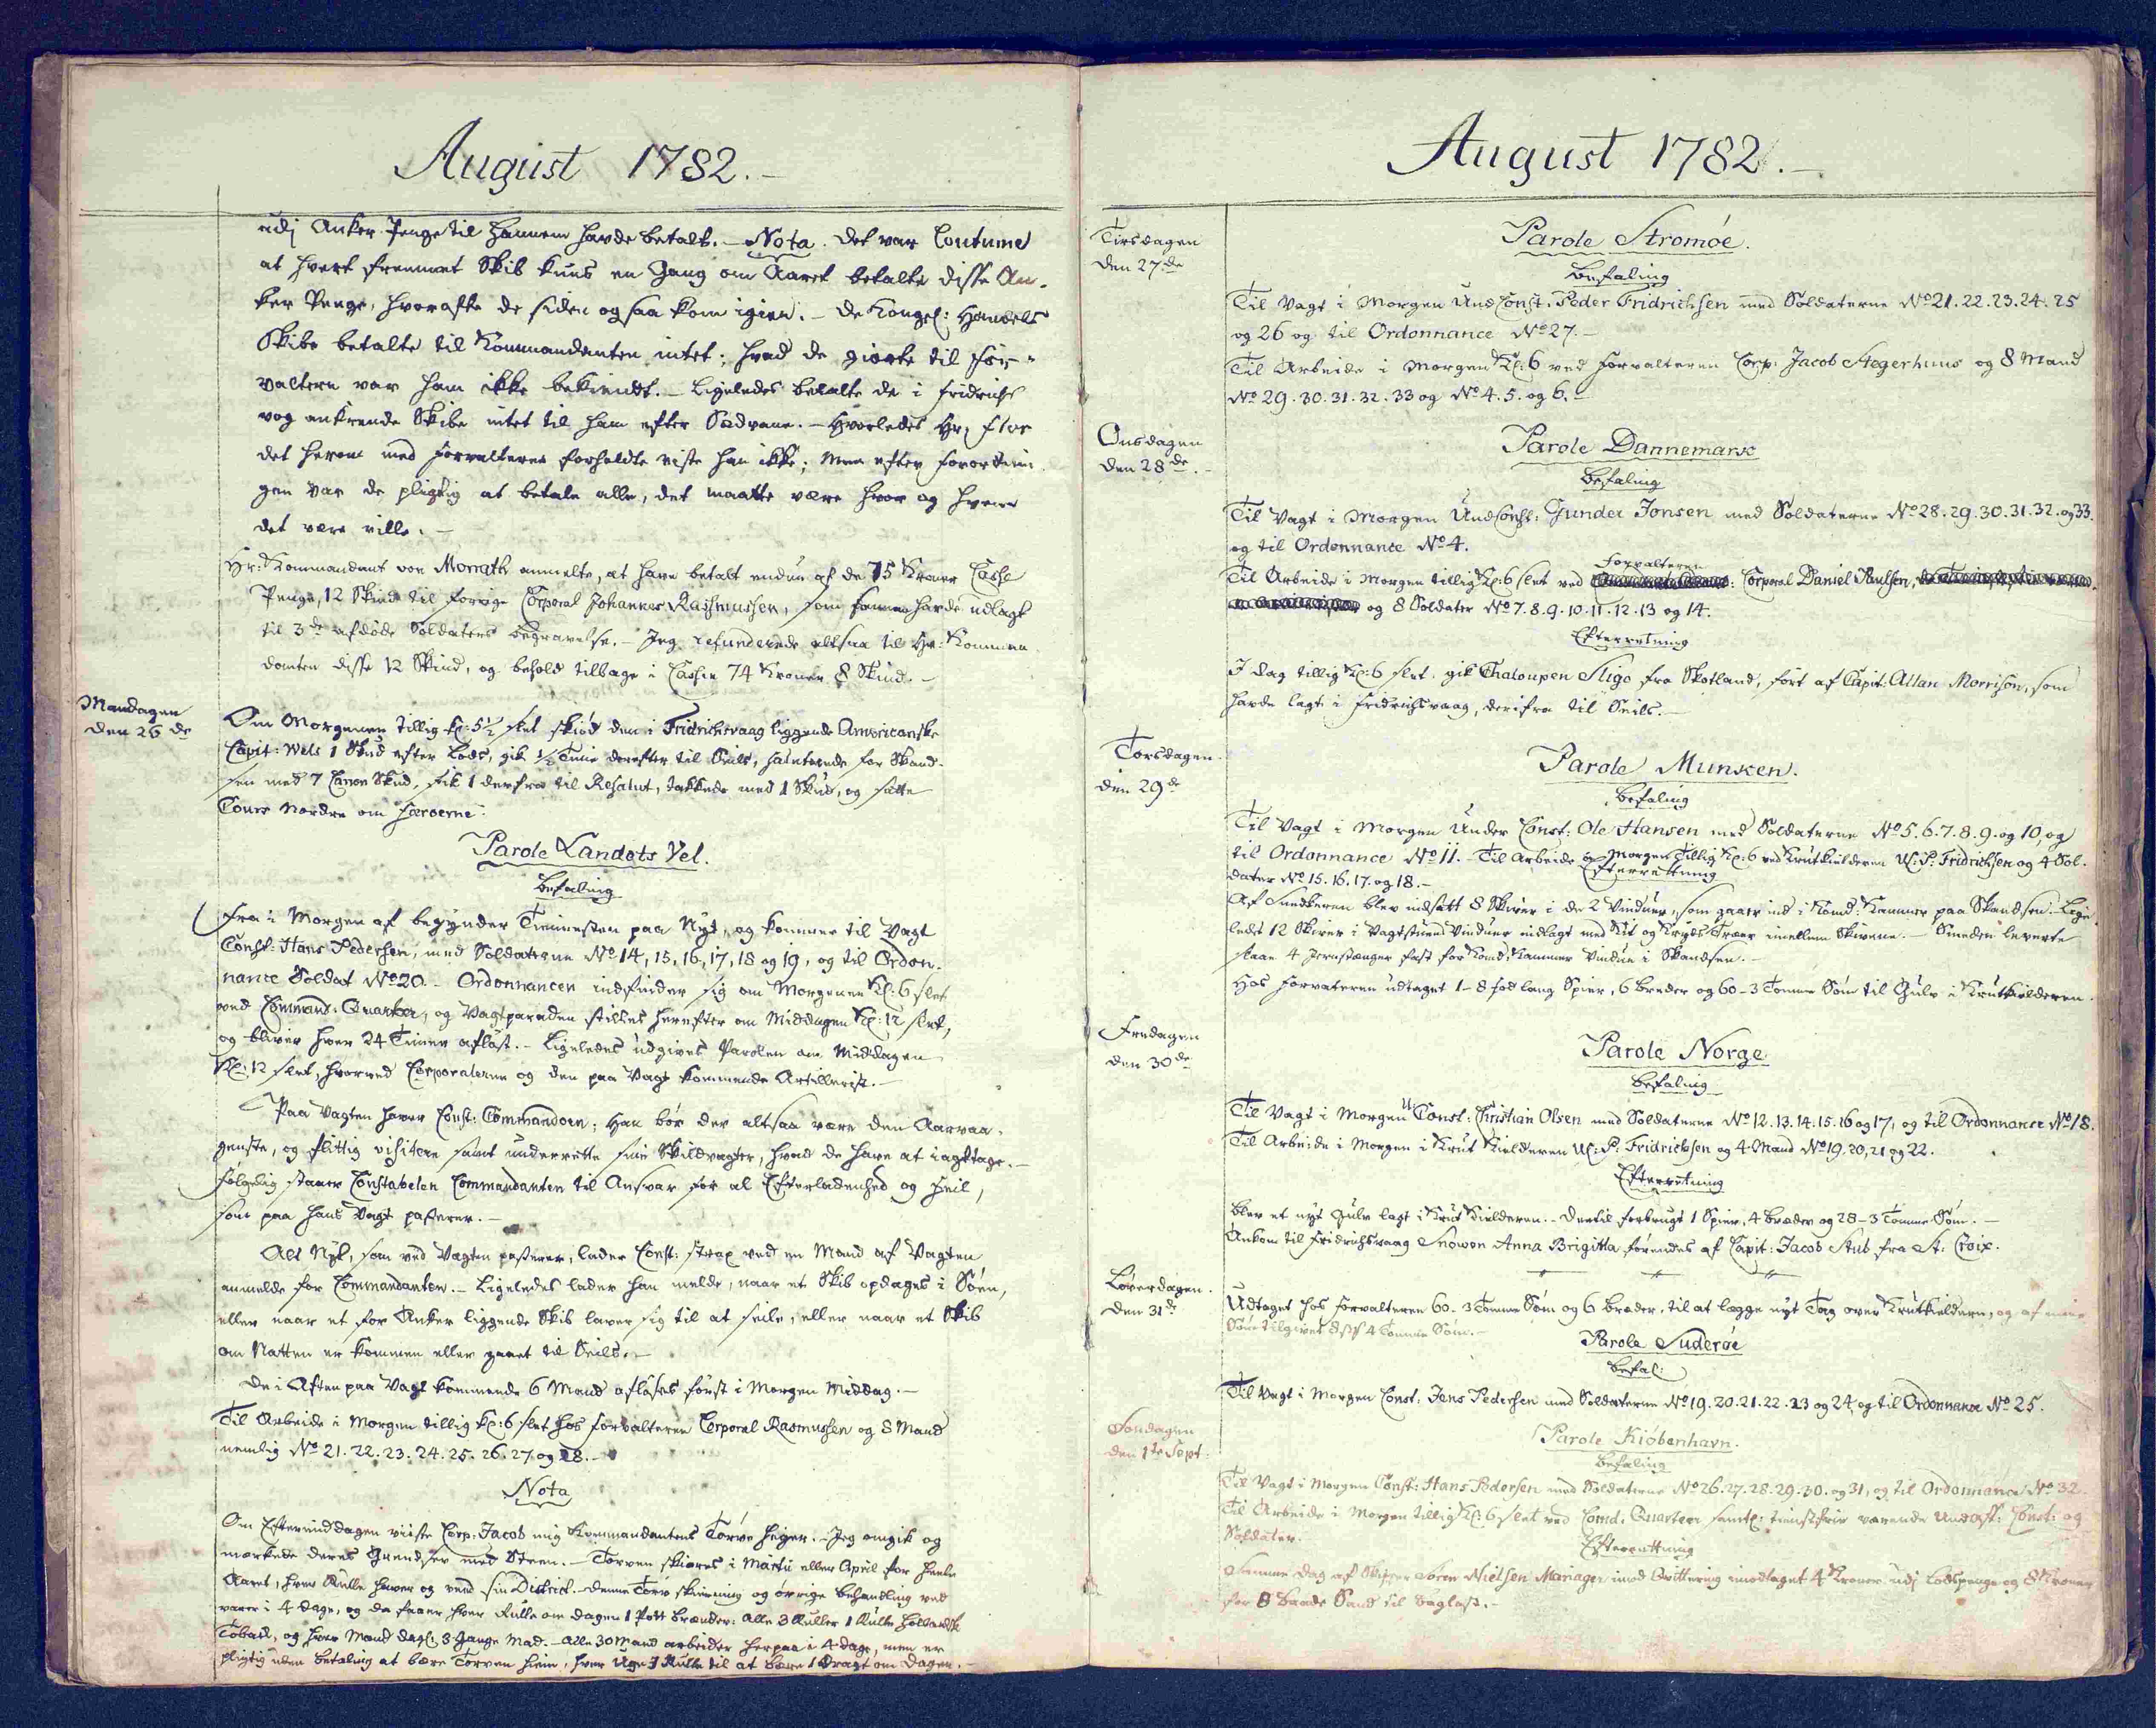 August 1782.-
udj Anker-Penge til hannem havde betalt. - Nota. Det var Coutume
at hvert fremmet Skib kuns en Gang om Aaret betalte disse An-
ker Penge, hvorofte de siden ogsaa kom igien. - De Kongel: Handels
Skibe betalte til Kommandanten intet; hvad de giorte til For-
valteren var ham ikke bekiendt. - Ligeledes betalte de i Fridrichs
vog ankrende Skibe intet til ham efter Sædvane. - Hvorledes Hr:
det herom med Forvalteren forholdte viste han ikke; Men efter Forordnin
gen var de pligtig at betale alle, det maatte være hvor og hvem
det være ville. -
Hr: Kommandant von Morrath anmelte, at have betalt endnu af de 75 Kroner Casse
Penge, 12 Skind til forrige Corporal Johannes Rasmussen, som hannem havde udlagt
til 3de afdøde Soldaters Begravelse. - Jeg refunderede altsaa til Hr: Komman
danten disse 12 Skind, og beholt tilbage i Cassen 74 Kroner 8 Skind. -
Mandagen
den 26de
Om Morgenen tillig Kl: 5½ slet skiød den i Fridrichsvaag liggende Americanske
Capit: Wels 1 Skud efter Lods, gik ½ Time derefter til Seils, saluterede for Skand-
sen med 7 Canon Skud, fik 1 derfra til Resalut, takkede med 1 Skud, og satte
Cours Nordre om Færøerne.
Parole Landets Vel.
Befaling
Fra i Morgen af begynder Tienesten paa Nyt, og kommer til Vagt
Const: Hans Pedersen, med Soldaterne No 14, 15, 16, 17, 18 og 19, og til Ordon-
nance Soldat No 20. - Ordonnancen indfinder sig om Morgenen Kl: 6 slet
ved Command: Quarteer, og Vagtparaden stilles herefter om Middagen Kl: 12 slet,
og bliver hver 24 Timer afløst. - Ligeledes udgives Parolen om Middagen
Kl: 12 slet, hvorved Corporalerne og den paa Vagt kommende Artillerist. -
Paa Vagten haver Const: Commandoen; Han bør der altsaa være den Aarvaa-
genste, og flittig visitere samt underrette sine Skildvagter, hvad de have at iagttage. -
Følgelig staaer Constabelen Commandanten til Ansvar for al Efterladenhed og Feil,
som paa hans Vagt passerer. -
Alt Nyt, som ved Vagten passerer, lader Const: strax ved en Mand af Vagten
anmelde for Commandanten. - Ligeledes lader han melde, naar et Skib opdages i Søen,
eller naar et for Anker liggende Skib laver sig til at seile, eller naar et Skib
om Natten er kommen eller gaaet til Seils. -
De i Aften paa Vagt kommende 6 Mand afløses først i Morgen Middag. -
Til Arbeide i Morgen tillig Kl: 6 slet hos Forvalteren Corporal Rasmussen og 8 Mand
nemlig No 21. 22. 23. 24. 25. 26. 27 og 28. -
Nota
Om Eftermiddagen viiste Corp: Jacob mig Kommandantens Torve Heger. - Jeg omgik og
mærkede deres Grendser med Steen. - Torven skiæres i Martii eller April for heele
Aaret, hver Rulle haver og ved sin District. - Denne Torv skiæring og øvrige Behandling ved
varer i 4 dage, og da faaer hver Rulle om dagen 1 Pott Brænde: alle 3 Ruller 1 Rulle Hollandsk
Tobak, og hver Mand dagl: 3 Gange Mad. - Alle 30 Mand arbeider herpaa i 4 dage, men er
pligtig uden Betaling at bære Torven hiem, hver Uge 1 Rulle til at bære 1 Dragt om Dagen. -
August 1782.-
Tirsdagen
den 27de
Parole Stromöe.
Befaling
Til Vagt i Morgen Und Const. Peder Fridrichsen med Soldaterne No 21. 22. 23. 24. 25
og 26 og til Ordonnance No 27. -
Til Arbeide i Morgen Kl: 6 ved Forvalteren Corp: Jacob Aegerhuus og 8 Mand
No 29. 30. 31. 32. 33 og No 4. 5. og 6. -
Onsdagen
den 28de. -
Parole Dannemark
Befaling
Til Vagt i Morgen Und Const: Gunder Jonsen med Soldaterne No 28. 29. 30. 31. 32. og 33.
og til Ordonnance No 4.
Til Arbeide i Morgen tillig Kl: 6 slet ved Forvalteren Corporal Daniel Paulsen,
og 8 Soldater No 7. 8. 9. 10. 11. 12. 13 og 14.
Efterretning
I dag tillig Kl: 6 slet. gik Chaloupen Sligo fra Skotland, fört af Capit: Allan Morrison, som
havde lagt i Fridrichsvaag, derifra til Seils. -
Torsdagen.
den 29de
Parole Munken.
Befaling
Til Vagt i Morgen Under Const: Ole Hansen med Soldaterne No 5. 6. 7. 8. 9. og 10, og
til Ordonnance No 11. - Til Arbeide i Morgen tillig Kl: 6 ved Krutkielderen U: P: Fridrichsen og 4 Sol-
dater No 15. 16. 17. og 18. -
Efterretning
Af Snedkeren blev indsatt 8 Skiver i de 2 Vinduer, som gaaer ind i Komd: Kammer paa Skandsen - Lige
ledes 12 Skiver i Vagtstuens Vinduer indlagt med Kit og Kryds Træer imellem Skiverne. - Smeden leverte
4 Jernstænger fast for Komd: Kammer Vindue i Skandsen. -
Hos Forvalteren udtaget 1 - 8 fod lang Spier, 6 Breder og 60 - 3 Tomme Söm til Gulv i Krutkielderen.
Fredagen
den 30de
Parole Norge
Befaling
Til Vagt i Morgen U: Const: Christian Olsen med Soldaterne No 12. 13. 14. 15. 16 og 17, og til Ordonnance No 18.
Til Arbeide i Morgen i Krut Kielderen U: P: Fridrichsen og 4 Mand No 19, 20, 21 og 22.
Efterretning
Blev et nyt Gulv lagt i Krut Kielderen. - Dertil forbrugt 1 Spier, 4 Bræder og 28 - 3 Tomme Söm. -
Ankom til Fridrichsvaag Snowen Anna Brigitta förendes af Capit: Jacob Stub fra St: Croix.
Löverdagen.
den 31te
Udtaget hos Forvalteren 60. 3 Tomme Söm og 6 Bræder, til at lægge nyt Tag over Krutkieldern, og af mine
Söm tilgivet 4 Tomme Söm. -
Parole Suderöe
Befal:
Til Vagt i Morgen Const: Jens Pedersen med Soldaterne No 19. 20. 21. 22. 23 og 24, og til Ordonnance No 25.
Söndagen
den 1te Sept:
Parole Kiöbenhavn.
Befaling
Til Vagt i Morgen Const: Hans Pedersen med Soldaterne No 26. 27. 28. 29. 30. og 31, og til Ordonnance No 32.
Til Arbeide i Morgen tillig Kl: 6 slet ved Comd. Quarteer samtl: tienstfrie værende Undoff: Const: og
Soldater.
Efterretning
Samme Dag af Skipper Sören Nielsen Mariager imod Qvittering imodtaget 4 Kroner udj Lodspenge og 8 Kroner
for 8 Baade Sand til Baglast. -